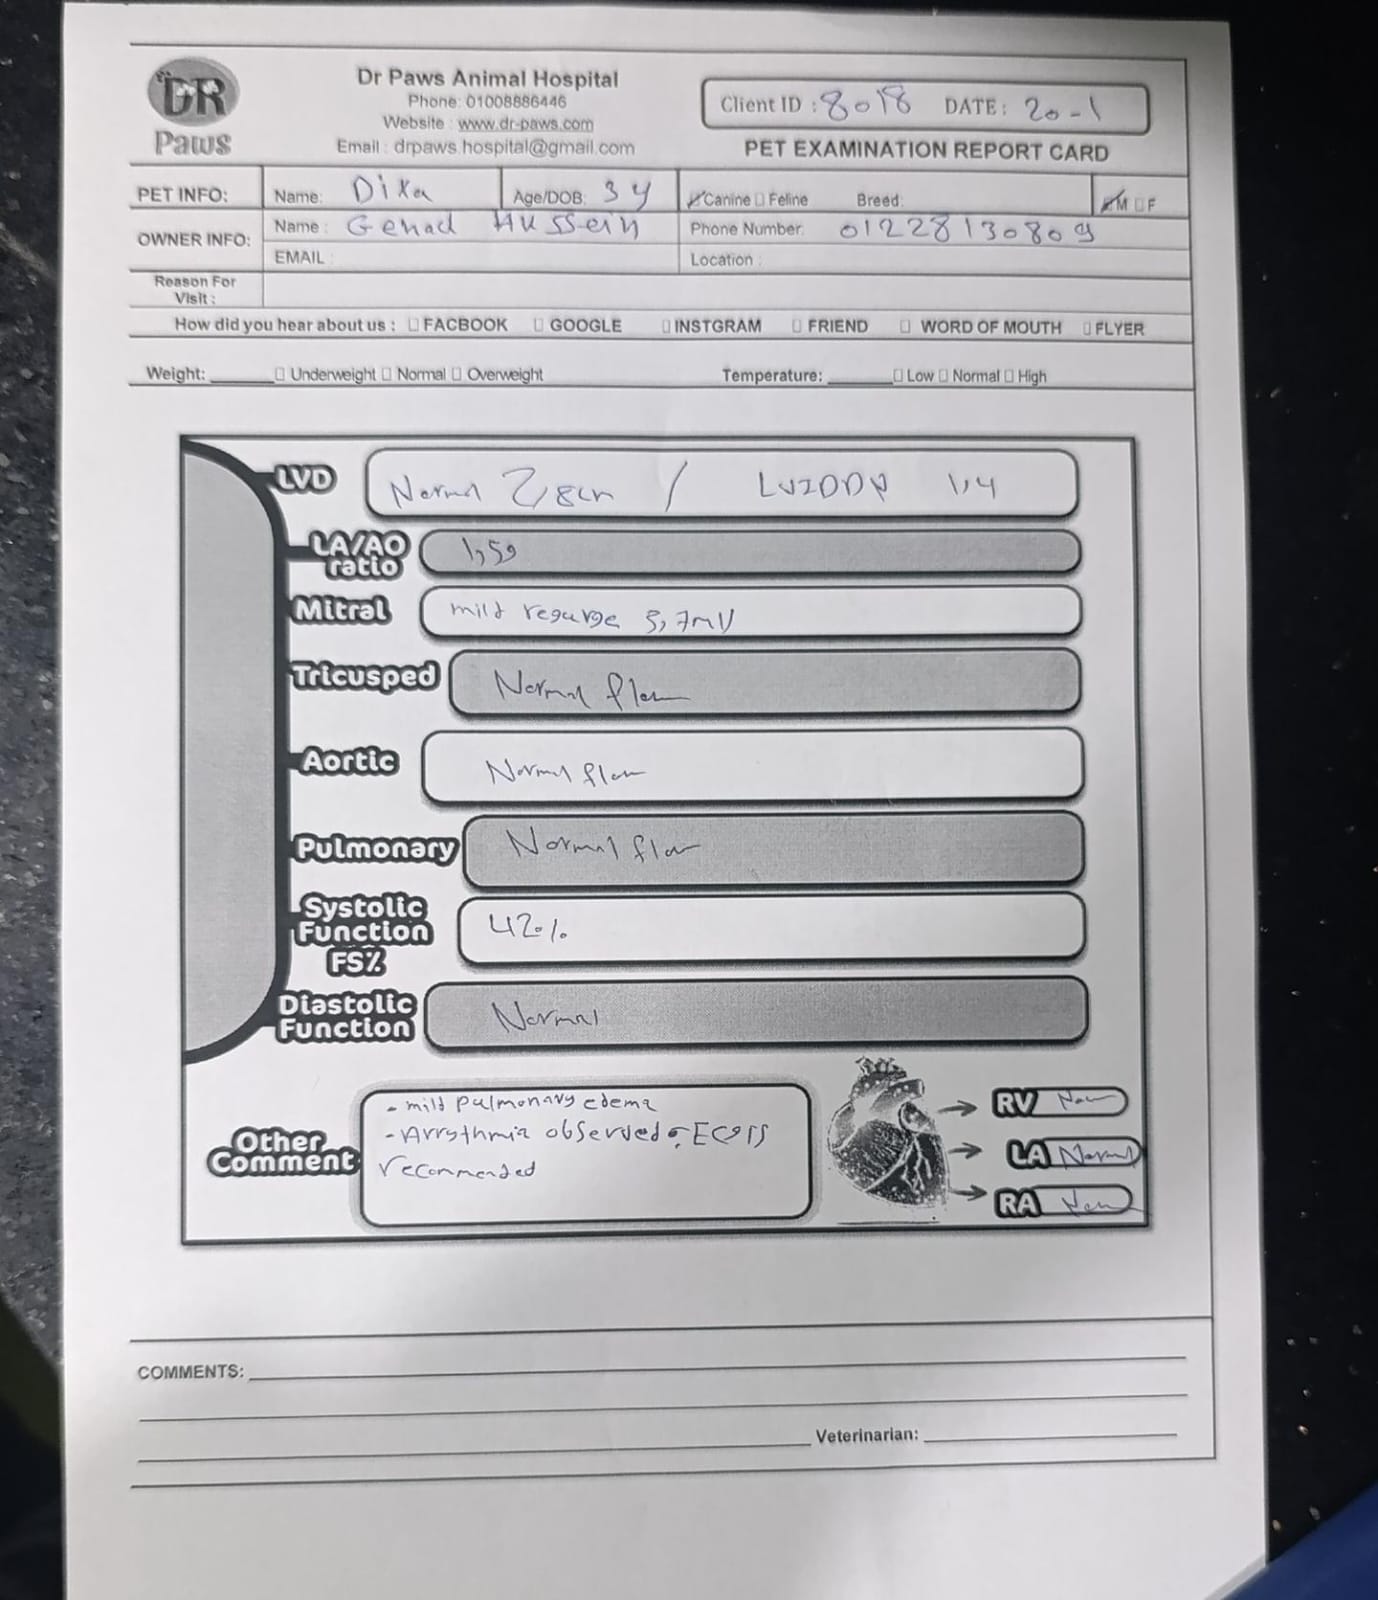 DR
Paws
Dr Paws Animal Hospital
Phone: 01008886446
Website : www.dr-paws.com
Email : drpaws.hospital@gmail.com
Client ID : 8018 DATE: 20-1
PET EXAMINATION REPORT CARD
PET INFO: Name: Dixa Age/DOB: 3 y Canine Feline Breed: M F
OWNER INFO: Name : Genad Hussein Phone Number: 01228130809
EMAIL : Location :
Reason For
Visit :
How did you hear about us : FACBOOK GOOGLE INSTGRAM FRIEND WORD OF MOUTH FLYER
Weight: Underweight Normal Overweight Temperature: Low Normal High
LVD Normal 2,8cm / LVIDDN 1,4
LA/AO
ratio 1,59
Mitral mild regurge 5,7mV
Tricusped Normal flow
Aortic Normal flow
Pulmonary Normal flow
Systolic
Function
FS% 42%
Diastolic
Function Normal
Other
Comment
- mild pulmonary edema
- Arrythmia observed ECG is
recommended
RV Nor
LA Normal
RA Nor
COMMENTS:
Veterinarian: